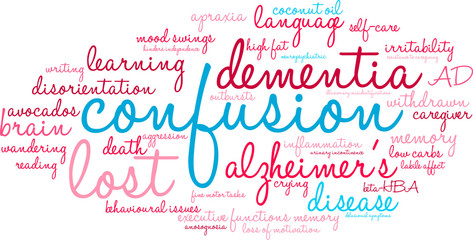 coconut oil
apraxia
language
self-care
mood swings
hinders independence
high fat
neuropsychiatric
irritability
resistance to caregiving
writing
learning
dementia
AD
disorientation
outbursts
withdrawn
avocados
confusion
caregiver
brain
aggression
memory
wandering
death
inflammation
urinary incontinence
low carbs
reading
lost
alzheimer's
labile affect
crying
beta-HBA
fine motor tasks
disease
behavioural issues
executive functions
memory
anosognosia
loss of motivation